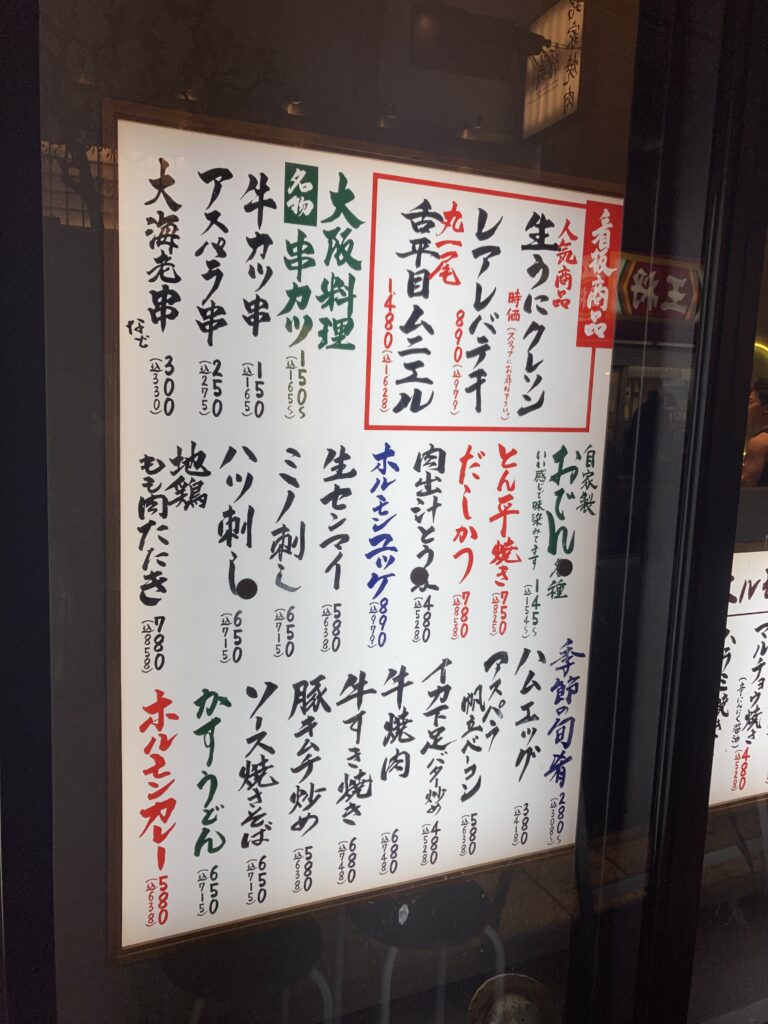 看板商品
人気商品
生うにクレソン
時価(スタッフにお尋ね下さい。)
レアレバテキ
890(込979)
丸一尾
舌平目ムニエル
1.480(込1628)
大阪料理
名物
串カツ
150~
(込165~)
牛カツ串
150
(込165)
アスパラ串
250
(込275)
大海老串
など
300
(込330)
自家製
おでん
各種
いい感じで味染みてます
145~
(込154~)
とん平焼き
750
(込825)
だしかつ
780
(込858)
肉出汁とうふ
480
(込528)
ホルモンユッケ
890
(込979)
生センマイ
580
(込638)
ミノ刺し
650
(込715)
ハツ刺し
650
(込715)
地鶏
もも肉たたき
780
(込858)
季節の旬肴
280~
(込308~)
ハムエッグ
380
(込418)
アスパラ
帆立ベーコン
580
(込638)
イカ下足バター炒め
480
(込528)
牛焼肉
680
(込748)
牛すき焼き
680
(込748)
豚キムチ炒め
580
(込638)
ソース焼きそば
650
(込715)
かすうどん
650
(込715)
ホルモンカレー
580
(込638)
王将
マルチョウ焼き
480
(込528)